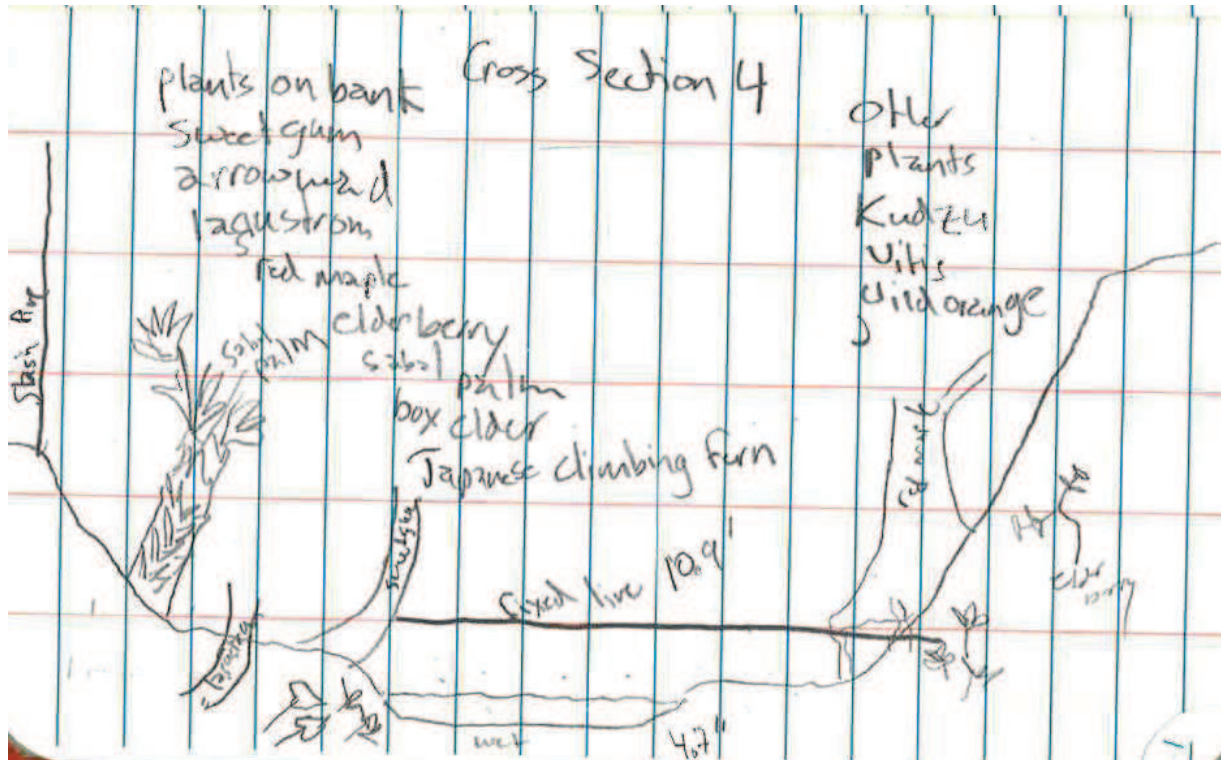 Cross Section 4
plants on bank
Sweetgum
arrowhead
lagustrom
red maple
elderberry
sabal palm
box elder
Japanese climbing fern
Other
plants
Kudzu
Vitis
Wild orange
Slash Pine
sabal
palm
lagustrom
sweetgum
fixed line 10.9'
red maple
elder
berry
wet
4.7"